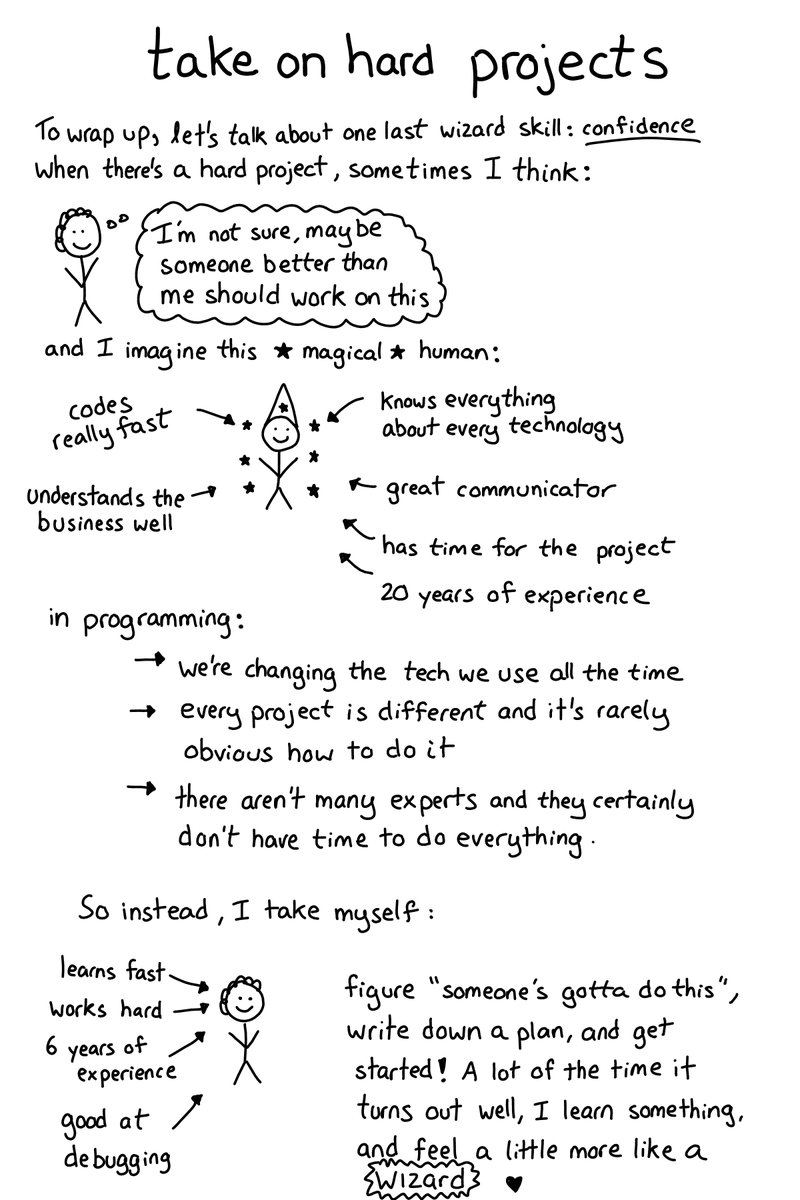 take on hard projects
To wrap up, let's talk about one last wizard skill: confidence
When there's a hard project, sometimes I think:
I'm not sure, maybe
someone better than
me should work on this
and I imagine this ★ magical ★ human:
codes
really fast
knows everything
about every technology
understands the
business well
great communicator
has time for the project
20 years of experience
in programming:
→ we're changing the tech we use all the time
→ every project is different and it's rarely
obvious how to do it
→ there aren't many experts and they certainly
don't have time to do everything.
So instead, I take myself:
learns fast
works hard
6 years of
experience
good at
debugging
figure "someone's gotta do this",
write down a plan, and get
started! A lot of the time it
turns out well, I learn something,
and feel a little more like a
Wizard ♥